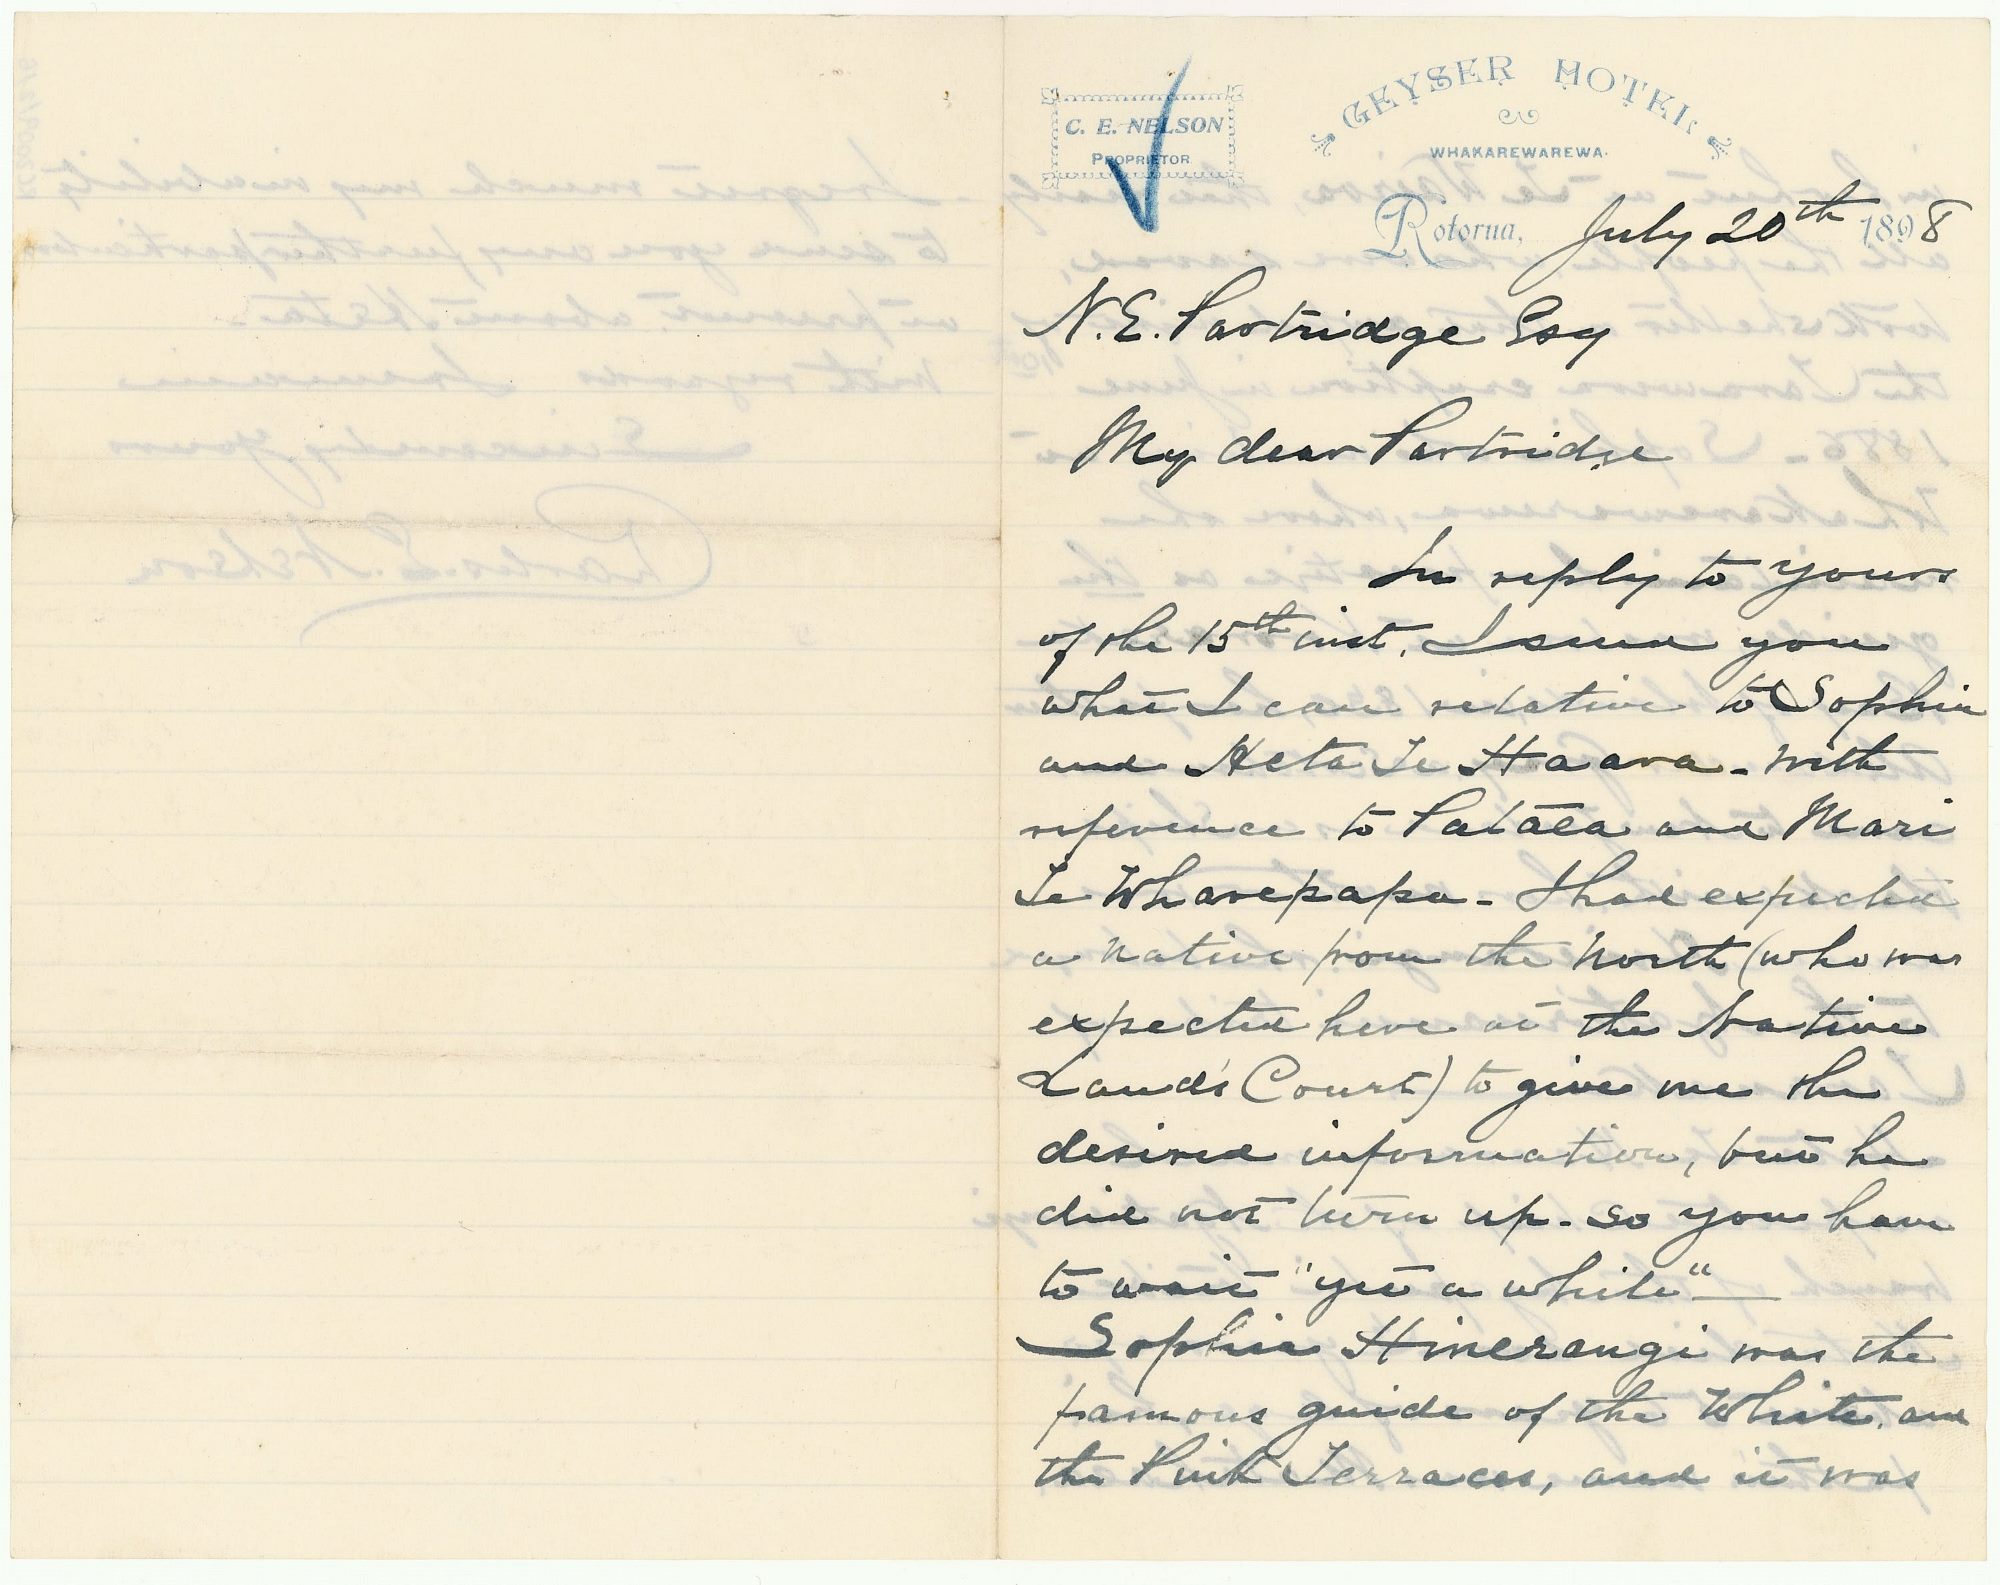 C. E. NELSON
PROPRIETOR
GEYSER HOTEL
WHAKAREWAREWA.
Rotorua, July 20th 1898
N. E. Partridge Esq
My dear Partridge
In reply to yours
of the 15th inst. I send you
what I can relative to Sophia
and Keta Te Haara - with
reference to Patāea and Mari
Te Wharepapa - I had expected
a native from the North (who was
expected here at the Native
Land's Court) to give me the
desired information, but he
did not turn up - so you have
to wait "yet a while" —
Sophia Hinerangi was the
famous guide of the White. and
the Pink Terraces, and it was